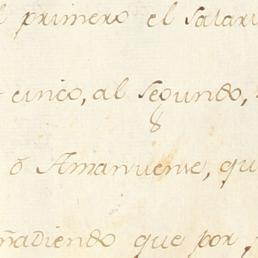 primero el salari
cinco, al segundo,
8
o Amanuense, qu
ñadiendo que por